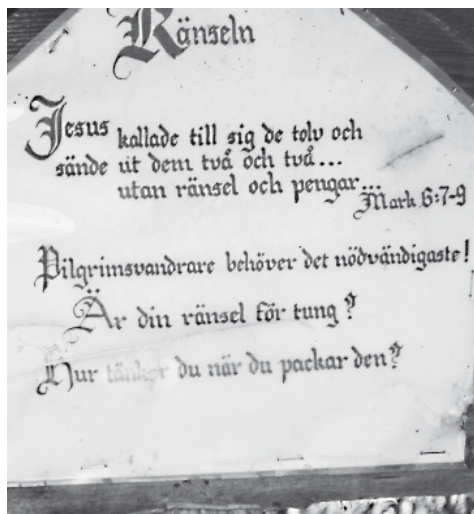 Ränseln
Jesus kallade till sig de tolv och
sände ut dem två och två...
utan ränsel och pengar...
Mark. 6:7-9
Pilgrimsvandrare behöver det nödvändigaste!
Är din ränsel för tung?
Hur tänker du när du packar den?